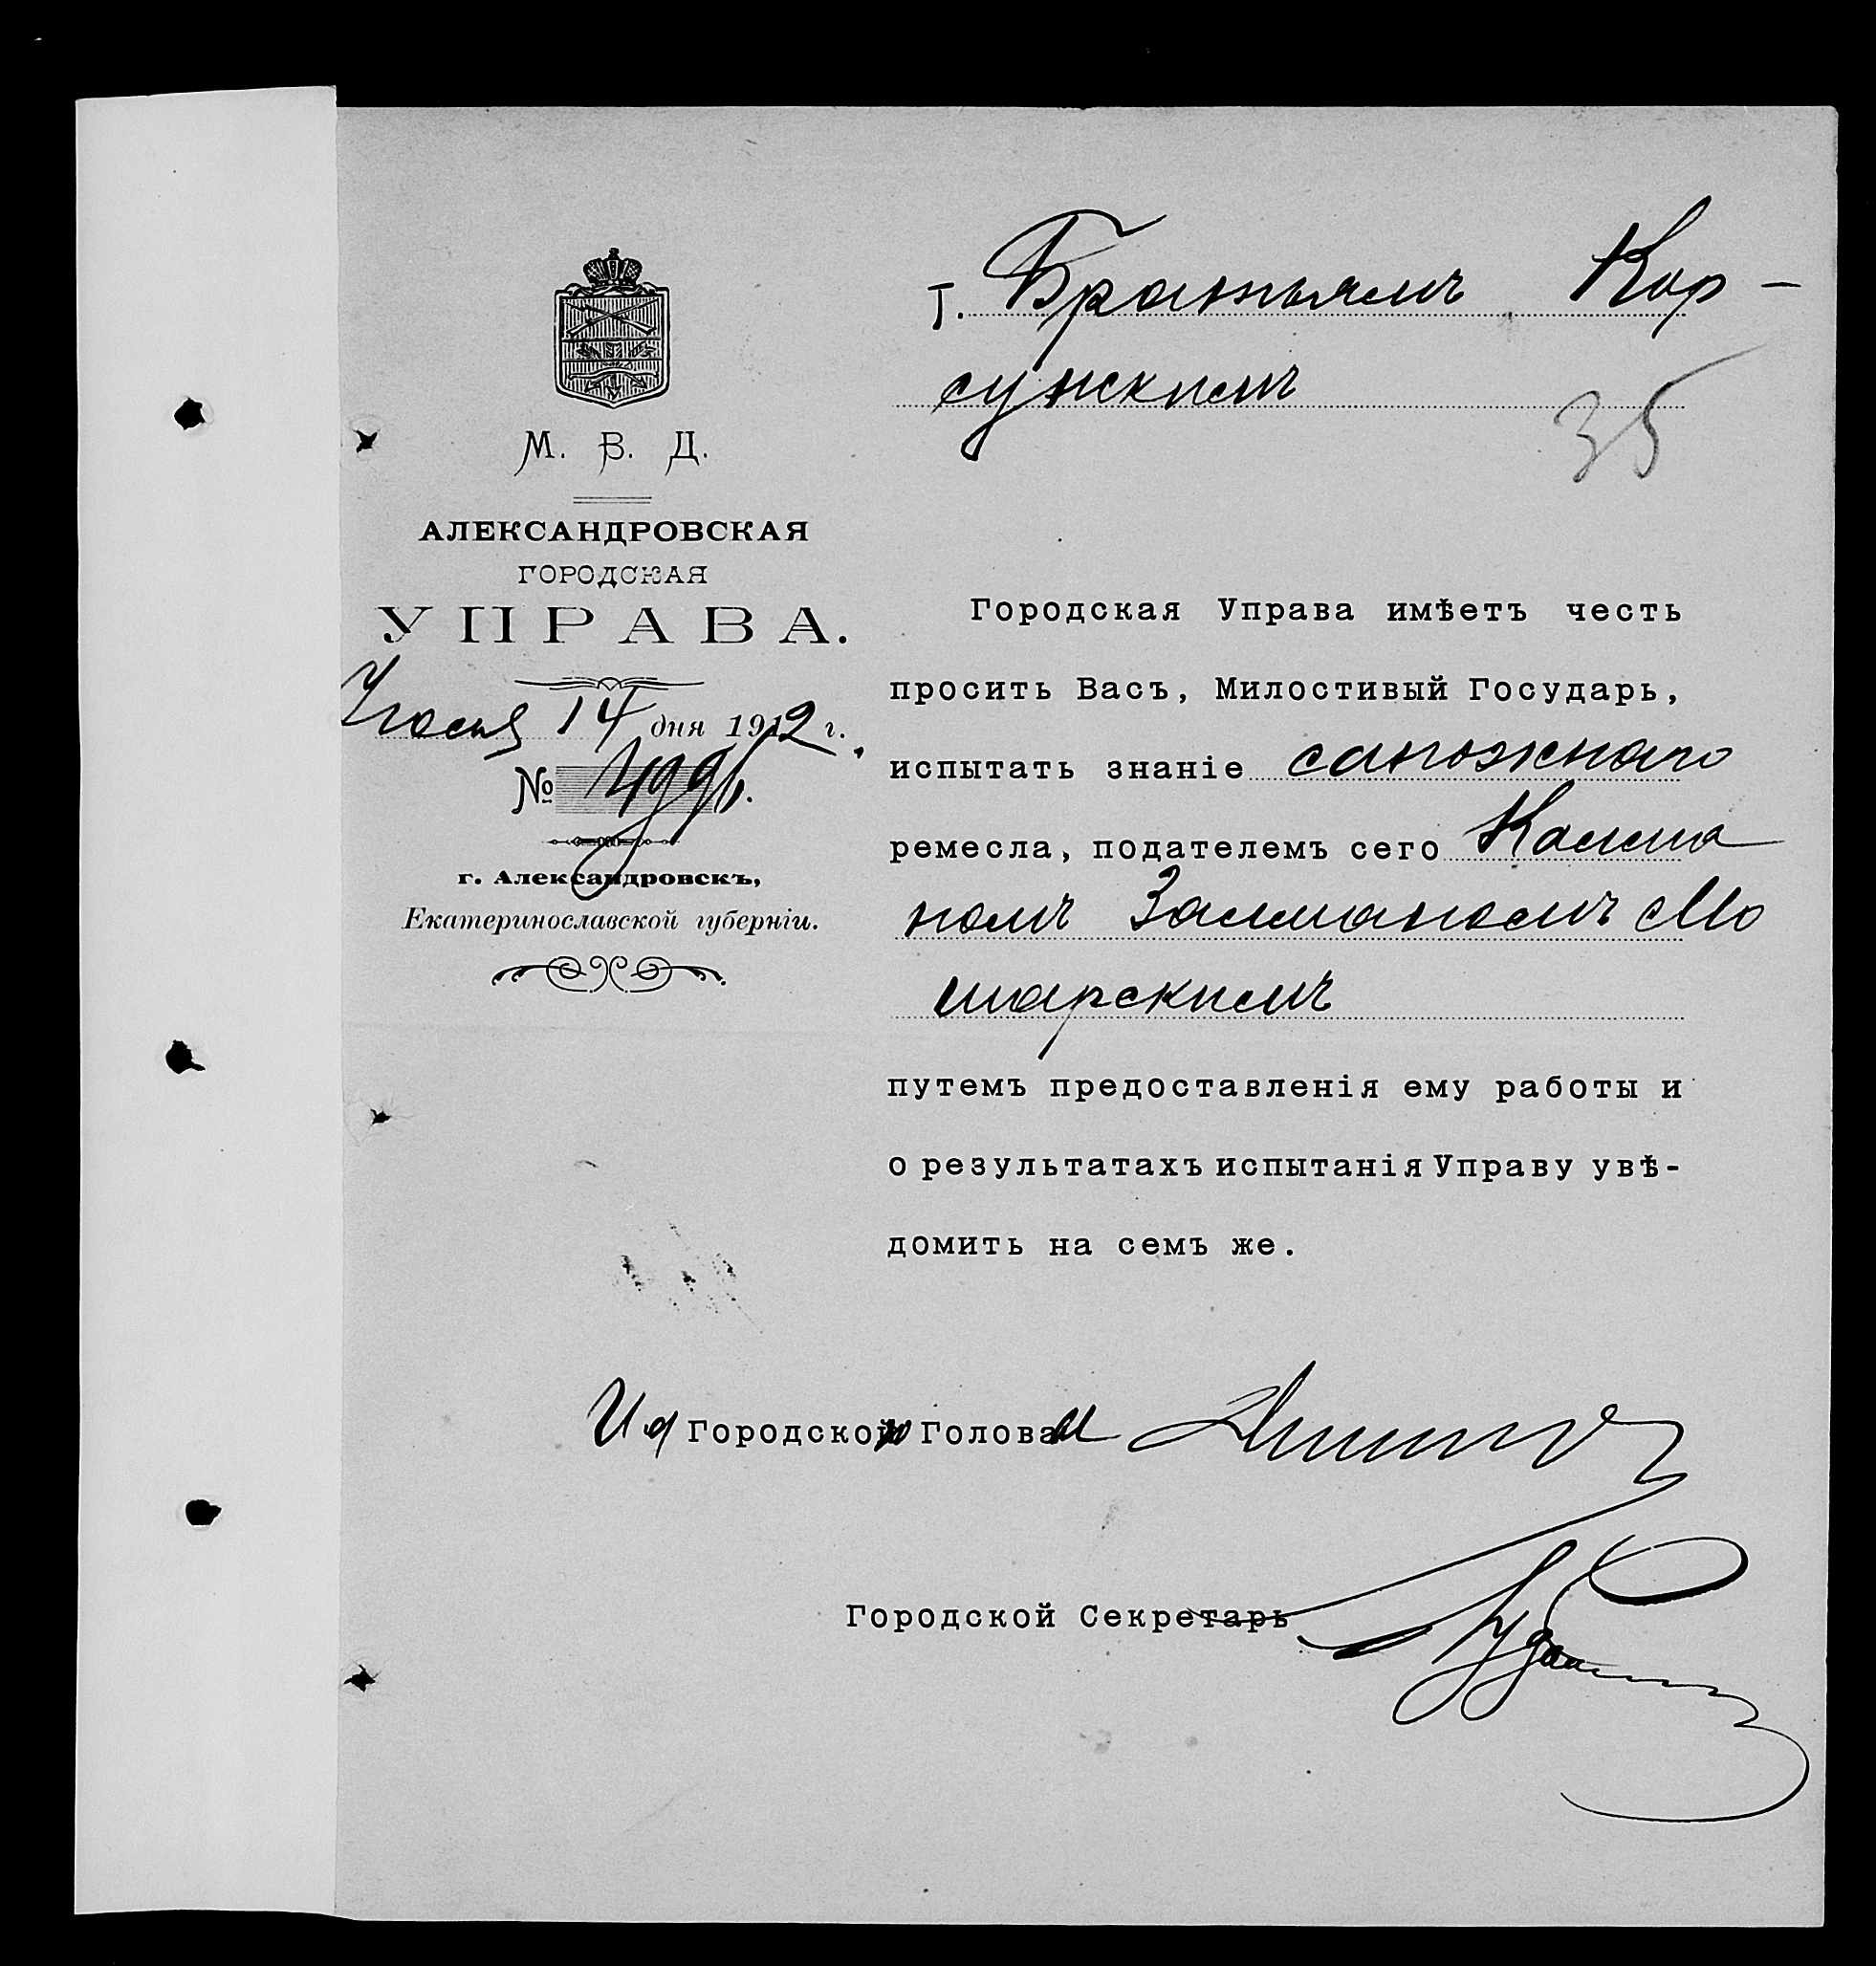 М. В. Д.
АЛЕКСАНДРОВСКАЯ
ГОРОДСКАЯ
УПРАВА.
14 дня 1912 г.
№
г. Александровскъ,
Екатеринославской губерніи.
Г. Братьямъ Кор-
сунскимъ
35
Городская Управа имѣетъ честь
просить Васъ, Милостивый Государь,
испытать знаніе сапожнаго
ремесла, подателемъ сего Калма
номъ Залмановымъ Мо
шарскимъ
путемъ предоставленія ему работы и
о результатахъ испытанія Управу увѣ-
домить на семъ же.
Ид Городского Головы
Городской Секретарь